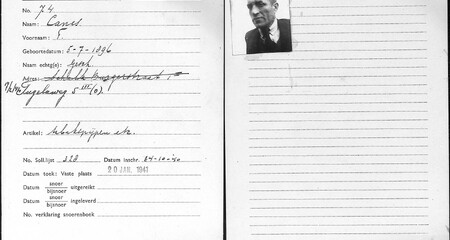 No. 74
Naam: Canes
Voornaam: T
Geboortedatum: 5-7-1896
Naam echtg(e):
Adres:
5 III (o).
Artikel: tabakspijpen etc.
No. Soll.lijst 328 Datum inschr. 24-10-40
Datum toek: Vaste plaats 20 JAN. 1941
Datum snoer bijsnoer uitgereikt
Datum snoer bijsnoer ingeleverd
No. verklaring snoerenboek